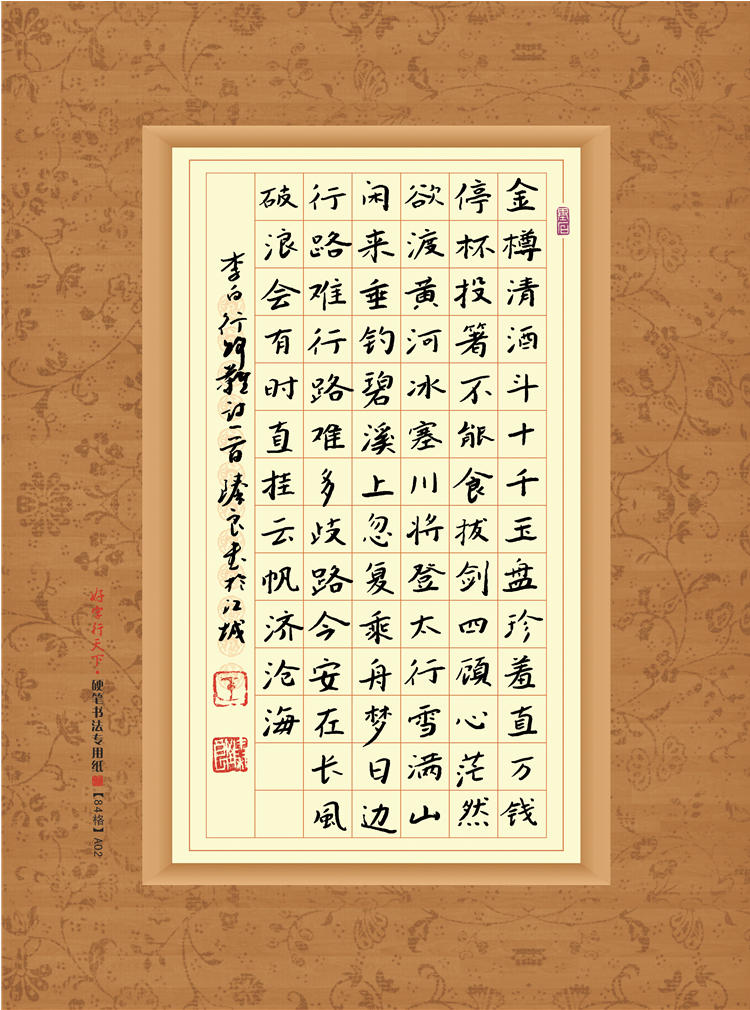 金樽清酒斗十千玉盘珍羞直万钱
停杯投箸不能食拔剑四顾心茫然
欲渡黄河冰塞川将登太行雪满山
闲来垂钓碧溪上忽复乘舟梦日边
行路难行路难多歧路今安在长風
破浪会有时直挂云帆济沧海
李白行路難诗一首臻良书於江城
好字行天下·硬笔书法专用纸【84格】A02